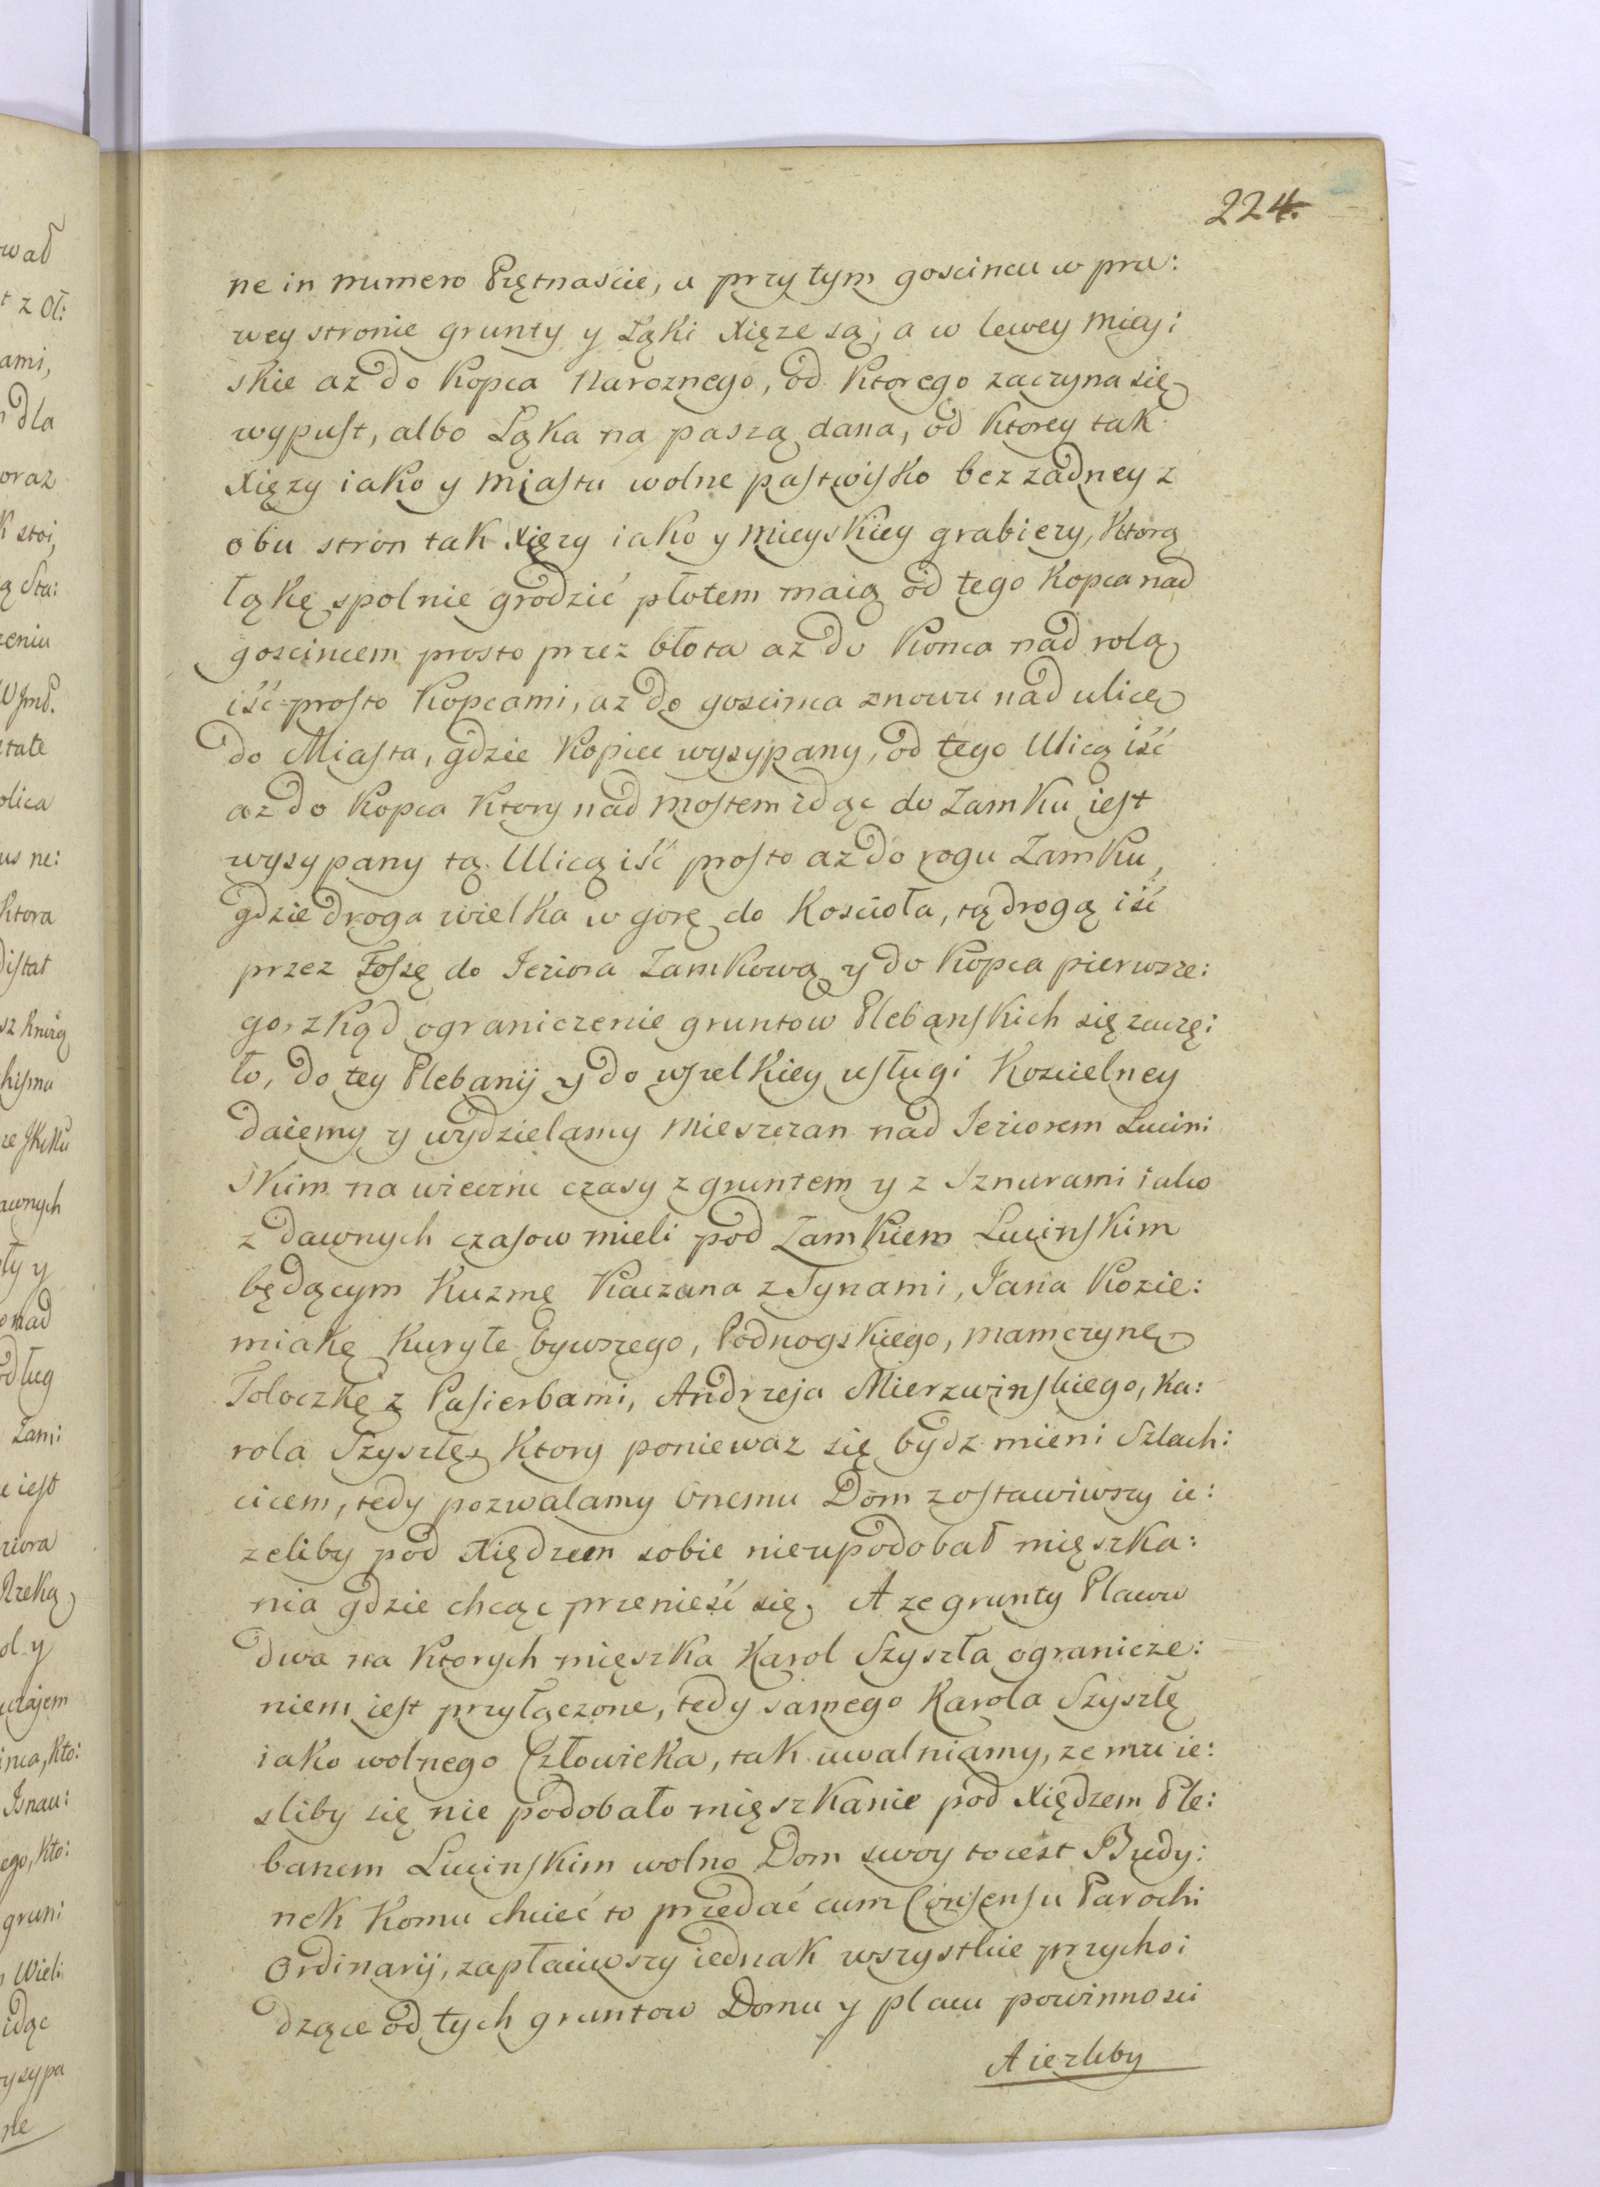 224.
ne in numero Piętnascie, a przy tym goscincu w pra:
wey stronie grunty y Łąki Xięze są, a w lewey Miey:
skie az do Kopca Naroznego, od Ktorego zaczyna się
wypust, albo Łąka na paszą dana, od Ktorey tak
Xięzy iako y Miastu wolne pastwisko bez zadney z
obu stron tak Xięzy iako y Mieyskiey grabiezy, Ktorą
łąkę spolnie grodzić płotem maią od tego Kopca nad
goscincem prosto przez błota az do Konca nad rolą
iść prosto Kopcami, az do goscinca znowu nad ulicę
do Miasta, gdzie Kopiec wysypany, od tego Ulicą iść
az do Kopca Ktory nad mostem idąc do Zamku iest
wysypany tą Ulicą iść prosto az do rogu Zamku,
gdzie droga wielka w gorę do Koscioła, tą drogą iść
przez Fossę do Jeziora Zamkową y do Kopca pierwsze:
go, zkąd ograniczenie gruntow Plebanskich się zaczę:
ło, do tey Plebanij y do wszelkiey usługi Koscielney
daiemy y wydzielamy Mieszczan nad Jeziorem Lucin:
skim na wieczne czasy z gruntem y z Sznurami iako
z dawnych czasow mieli pod Zamkiem Lucinskim
będącym Kuzmę Kaczana z Synami, Jana Kozie:
miakę Kuryłe bywszego, Podnogskiego, Mamczynę
Toloczkę z Pasierbami, Andrzeja Mierzwinskiego, Ka:
rola Szyszłę, Ktory poniewaz się bydz mieni Szlach:
cicem, tedy pozwalamy onemu Dom zostawiwszy ie:
zeliby pod Xiędzem sobie nieupodobał mięszka:
nia gdzie chcąc przenieść się. A ze grunty Placu
dwa na Ktorych mięszka Karol Szyszła ogranicze:
niem iest przyłączone, tedy samego Karola Szyszłę
iako wolnego Człowieka, tak uwalniamy, ze mu ie:
sliby się nie podobało mięszkanie pod Xiędzem Ple:
banem Lucinskim wolno Dom swoy to iest Budy:
nek Komu chcieć to przedać cum Consensu Parochi
Ordinarij, zapłaciwszy iednak wszystkie przycho:
dzące od tych gruntow Domu y placu powinnosci
A iezliby